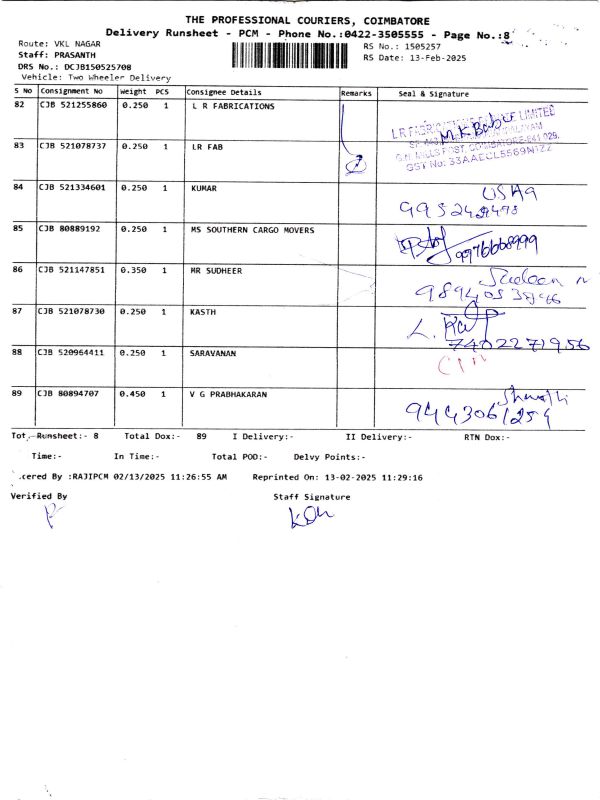 THE PROFESSIONAL COURIERS, COIMBATORE
Delivery Runsheet - PCM - Phone No.:0422-3505555 - Page No.:8
Route: VKL NAGAR
RS No.: 1505257
Staff: PRASANTH
RS Date: 13-Feb-2025
DRS No.: DCJB150525708
Vehicle: Two Wheeler Delivery
S No Consignment No Weight PCS Consignee Details Remarks Seal & Signature
82 CJB 521255860 0.250 1 L R FABRICATIONS
M.K Babu
83 CJB 521078737 0.250 1 LR FAB
2
GST No: 33AAECL5569N1ZZ
84 CJB 521334601 0.250 1 KUMAR
USHA
85 CJB 80889192 0.250 1 MS SOUTHERN CARGO MOVERS
9976668999
86 CJB 521147851 0.350 1 MR SUDHEER
87 CJB 521078730 0.250 1 KASTH
7402271956
88 CJB 520964411 0.250 1 SARAVANAN
89 CJB 80894707 0.450 1 V G PRABHAKARAN
9443061259
Tot. Runsheet:- 8 Total Dox:- 89 I Delivery:- II Delivery:- RTN Dox:-
Time:- In Time:- Total POD:- Delvy Points:-
.cered By :RAJIPCM 02/13/2025 11:26:55 AM Reprinted On: 13-02-2025 11:29:16
Verified By Staff Signature